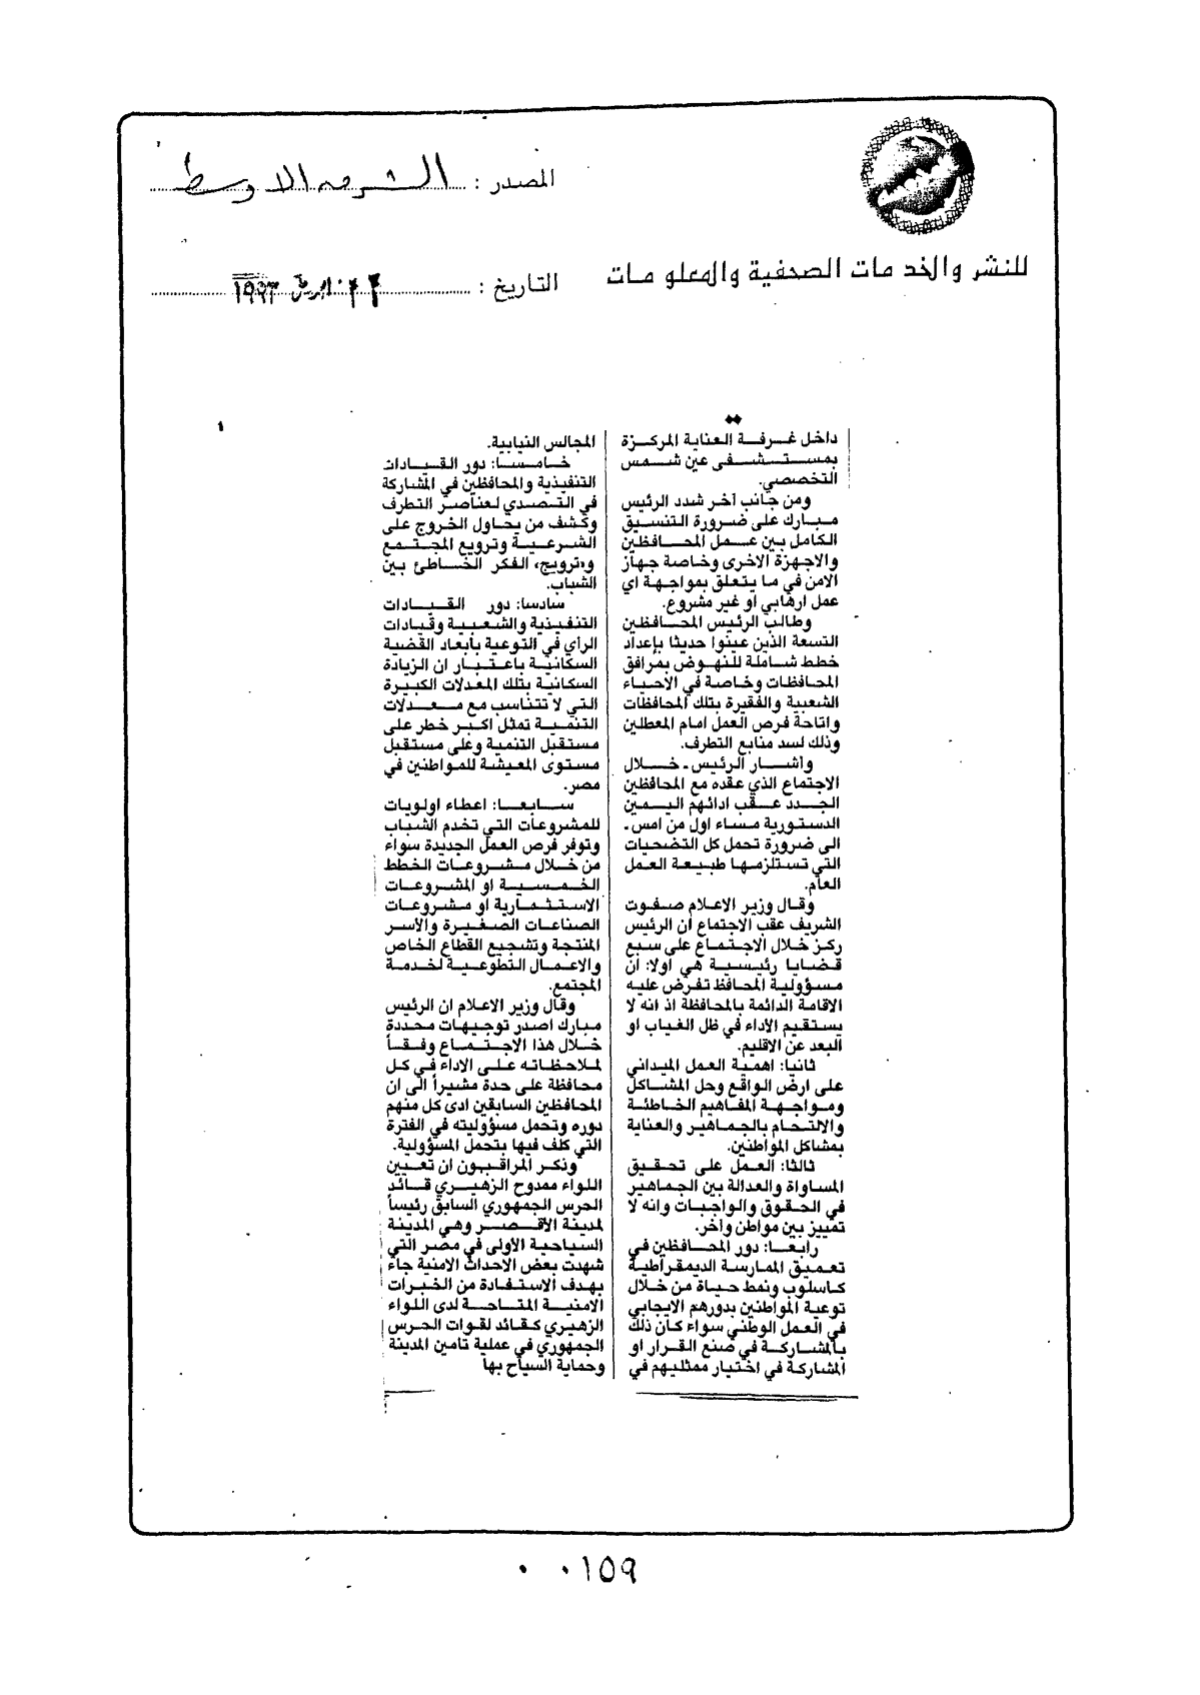 المصدر : الشرق الاوسط
للنشر والخدمات الصحفية والمعلومات
التاريخ : ١٩٩٣
داخل غرفة العناية المركزة
بمستشفى عين شمس
التخصصي.
ومن جانب آخر شدد الرئيس
مبارك على ضرورة التنسيق
الكامل بين عمل المحافظين
والاجهزة الاخرى وخاصة جهاز
الامن في ما يتعلق بمواجهة اي
عمل ارهابي او غير مشروع.
وطالب الرئيس المحافظين
التسعة الذين عينوا حديثا بإعداد
خطط شاملة للنهوض بمرافق
المحافظات وخاصة في الاحياء
الشعبية والفقيرة بتلك المحافظات
واتاحة فرص العمل امام المعطلين
وذلك لسد منابع التطرف.
واشار الرئيس ـ خلال
الاجتماع الذي عقده مع المحافظين
الجدد عقب ادائهم اليمين
الدستورية مساء اول من امس ـ
الى ضرورة تحمل كل التضحيات
التي تستلزمها طبيعة العمل
العام.
وقال وزير الاعلام صفوت
الشريف عقب الاجتماع ان الرئيس
ركز خلال الاجتماع على سبع
قضايا رئيسية هي اولا: ان
مسؤولية المحافظ تفرض عليه
الاقامة الدائمة بالمحافظة اذ انه لا
يستقيم الأداء في ظل الغياب او
البعد عن الاقليم.
ثانيا: اهمية العمل الميداني
على ارض الواقع وحل المشاكل
ومواجهة المفاهيم الخاطئة
والالتحام بالجماهير والعناية
بمشاكل المواطنين.
ثالثا: العمل على تحقيق
المساواة والعدالة بين الجماهير
في الحقوق والواجبات وانه لا
تمييز بين مواطن وآخر.
رابعا: دور المحافظين في
تعميق الممارسة الديمقراطية
كاسلوب ونمط حياة من خلال
توعية المواطنين بدورهم الايجابي
في العمل الوطني سواء كان ذلك
بالمشاركة في صنع القرار او
المشاركة في اختيار ممثليهم في
المجالس النيابية.
خامسا: دور القيادات
التنفيذية والمحافظين في المشاركة
في التصدي لعناصر التطرف
وكشف من يحاول الخروج على
الشرعية وترويع المجتمع
و«ترويج» الفكر الخاطئ بين
الشباب.
سادسا: دور القيادات
التنفيذية والشعبية وقيادات
الرأي في التوعية بأبعاد القضية
السكانية باعتبار ان الزيادة
السكانية بتلك المعدلات الكبيرة
التي لا تتناسب مع معدلات
التنمية تمثل اكبر خطر على
مستقبل التنمية وعلى مستقبل
مستوى المعيشة للمواطنين في
مصر.
سابعا: اعطاء اولويات
للمشروعات التي تخدم الشباب
وتوفر فرص العمل الجديدة سواء
من خلال مشروعات الخطط
الخمسية او المشروعات
الاستثمارية او مشروعات
الصناعات الصغيرة والأسر
المنتجة وتشجيع القطاع الخاص
والاعمال التطوعية لخدمة
المجتمع.
وقال وزير الاعلام ان الرئيس
مبارك اصدر توجيهات محددة
خلال هذا الاجتماع وفقاً
لملاحظاته على الاداء في كل
محافظة على حدة مشيراً الى ان
المحافظين السابقين ادى كل منهم
دوره وتحمل مسؤوليته في الفترة
التي كلف فيها بتحمل المسؤولية.
وذكر المراقبون ان تعيين
اللواء ممدوح الزهيري قائد
الحرس الجمهوري السابق رئيساً
لمدينة الاقصر وهي المدينة
السياحية الأولى في مصر التي
شهدت بعض الأحداث الامنية جاء
بهدف الاستفادة من الخبرات
الامنية المتاحة لدى اللواء
الزهيري كقائد لقوات الحرس
الجمهوري في عملية تامين المدينة
وحماية السياح بها
٠٠١٥٩